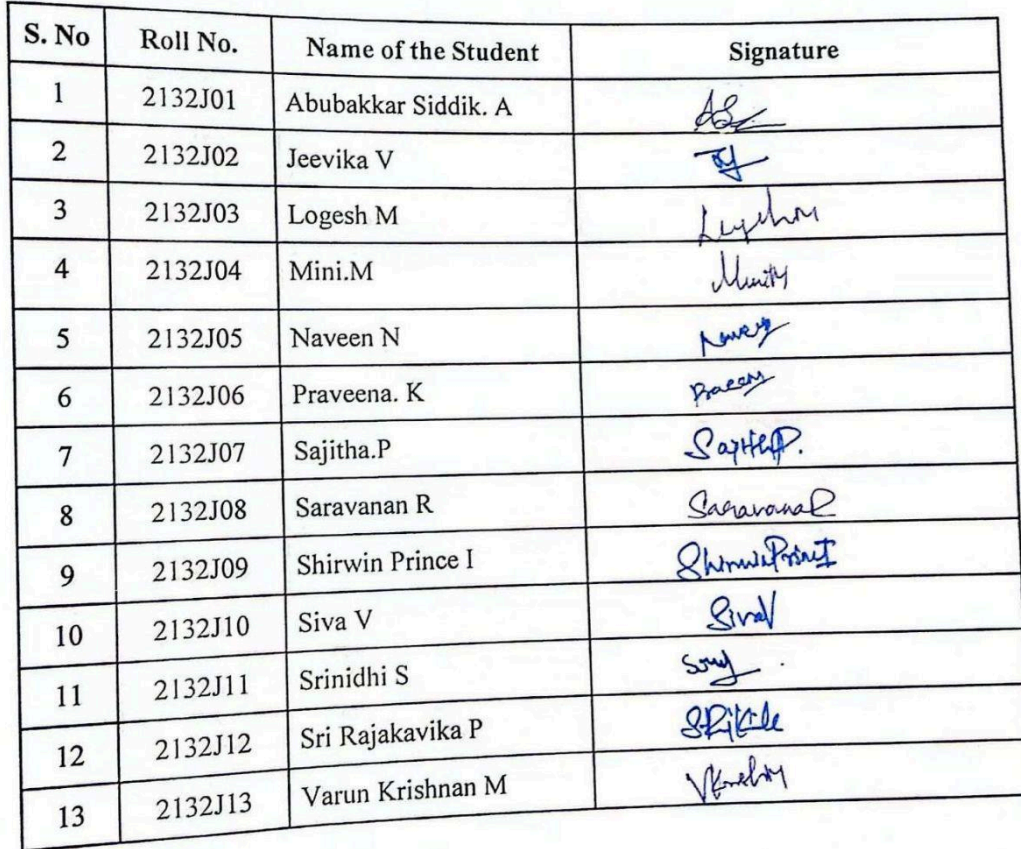 S. No Roll No. Name of the Student Signature
1 2132J01 Abubakkar Siddik. A
2 2132J02 Jeevika V
3 2132J03 Logesh M
4 2132J04 Mini.M
5 2132J05 Naveen N
6 2132J06 Praveena. K
7 2132J07 Sajitha.P Sajitha P.
8 2132J08 Saravanan R Saravana R
9 2132J09 Shirwin Prince I Shirwin Prince I
10 2132J10 Siva V Siva V
11 2132J11 Srinidhi S
12 2132J12 Sri Rajakavika P
13 2132J13 Varun Krishnan M